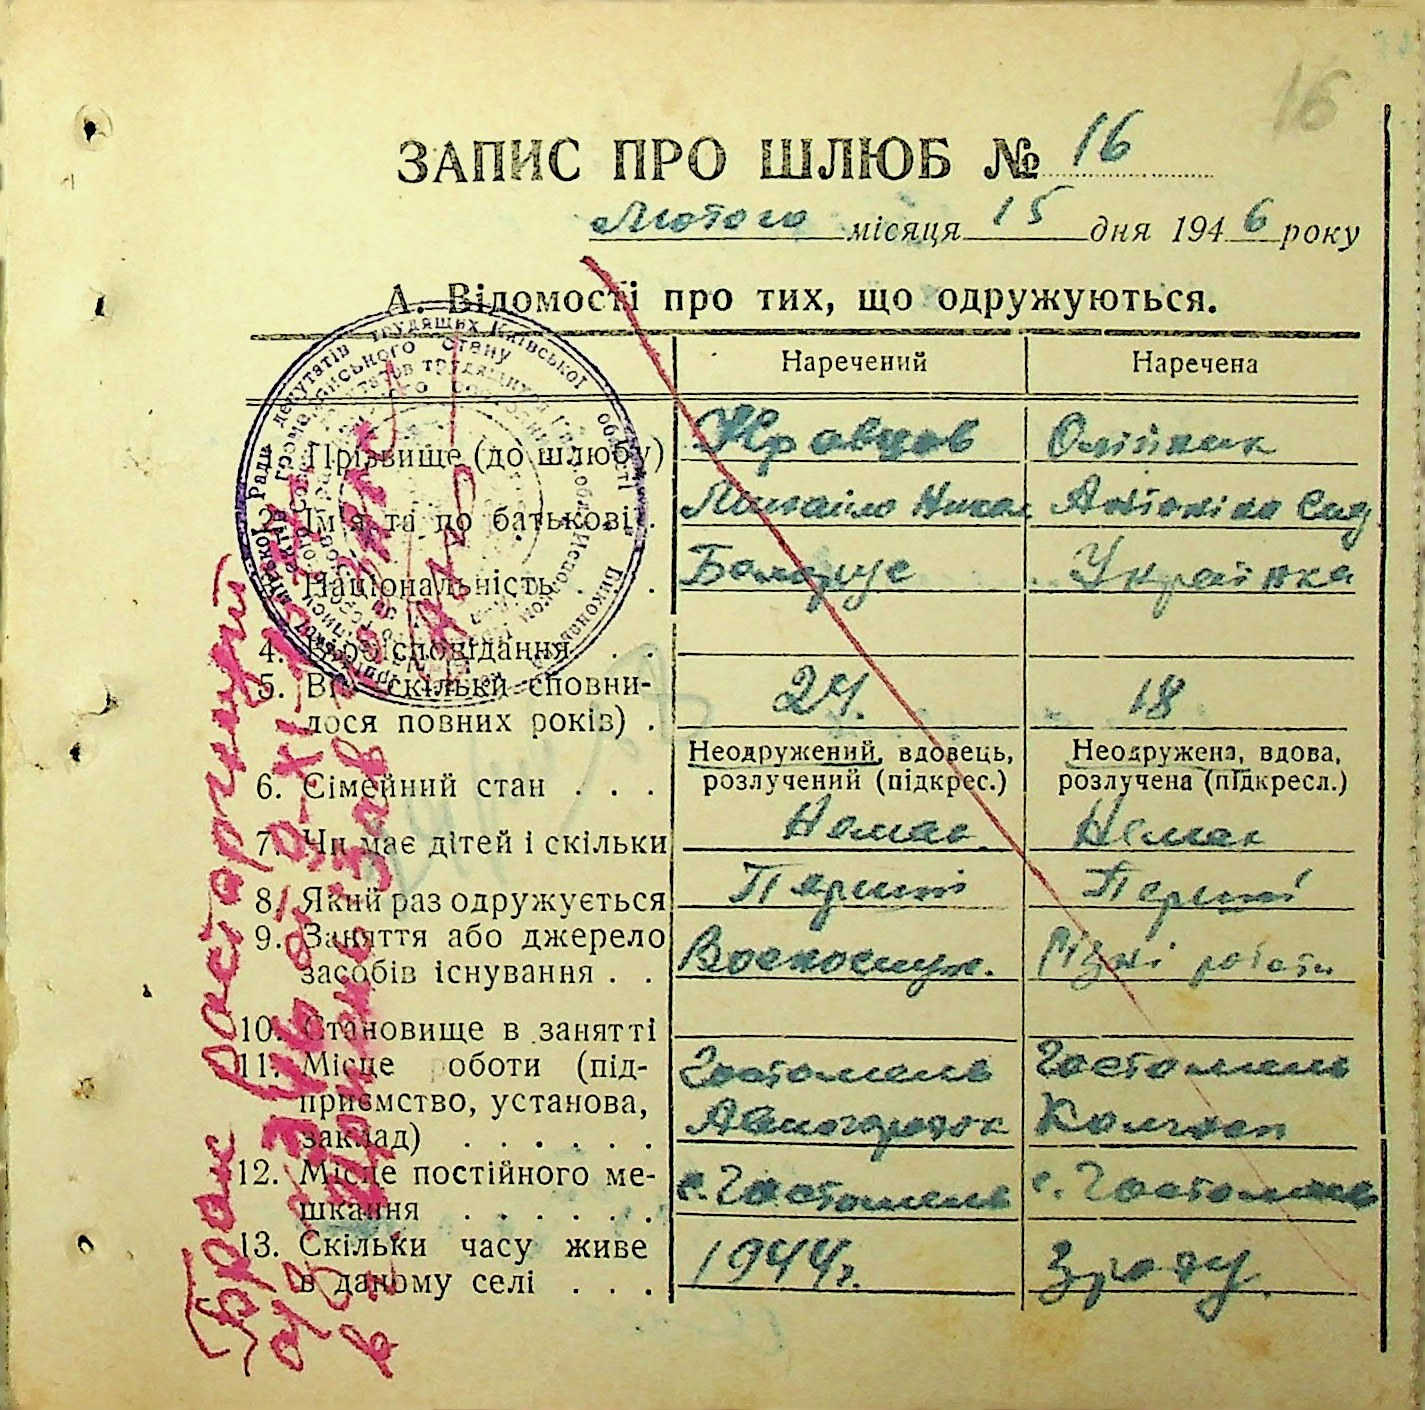 16
ЗАПИС ПРО ШЛЮБ № 16
Лютого місяця 15 дня 1946 року
А. Відомості про тих, що одружуються.
Наречений Наречена
Прізвище (до шлюбу) Кравцов Олійник
2. Ім'я та по батькові . Михайло Никол Антоніна Сид
Національність . . Беларус Українка
4. Віросповідання . .
5. Вік скільки сповни-
лося повних років) . 24. 18
Неодружений, вдовець, Неодружена, вдова,
6. Сімейний стан . . . розлучений (підкрес.) розлучена (підкресл.)
7. Чи має дітей і скільки Немає Немає
8. Який раз одружується Перший Перший
9. Заняття або джерело
засобів існування . . Воєнослуж. Різні роботи
10. Становище в занятті
11. Місце роботи (під- Гостомель Гостомель
приємство, установа,
заклад) . . . . . . Авіагородок Колгосп
12. Місце постійного ме-
шкання . . . . . . с. Гостомель с. Гостомель
13. Скільки часу живе
в даному селі . . . 1944г. Зроду.
Брак расторгнутий